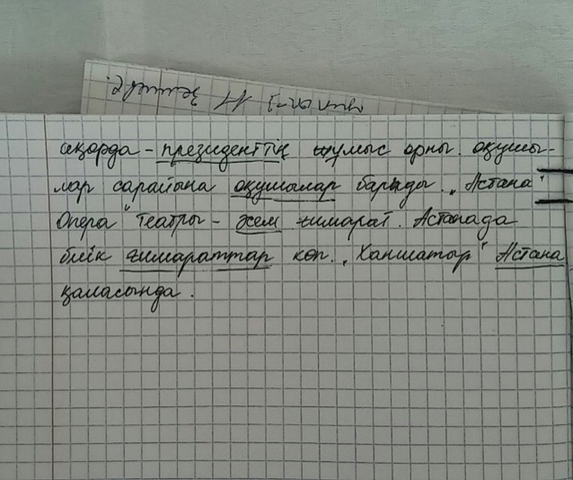 ақорда - президенттің жұмыс орны. оқушы-
лар сарайына оқушылар барады. „Астана
Опера" театры - әсем ғимарат. Астанада
биік ғимараттар көп. „Ханшатыр" Астана
қаласында.